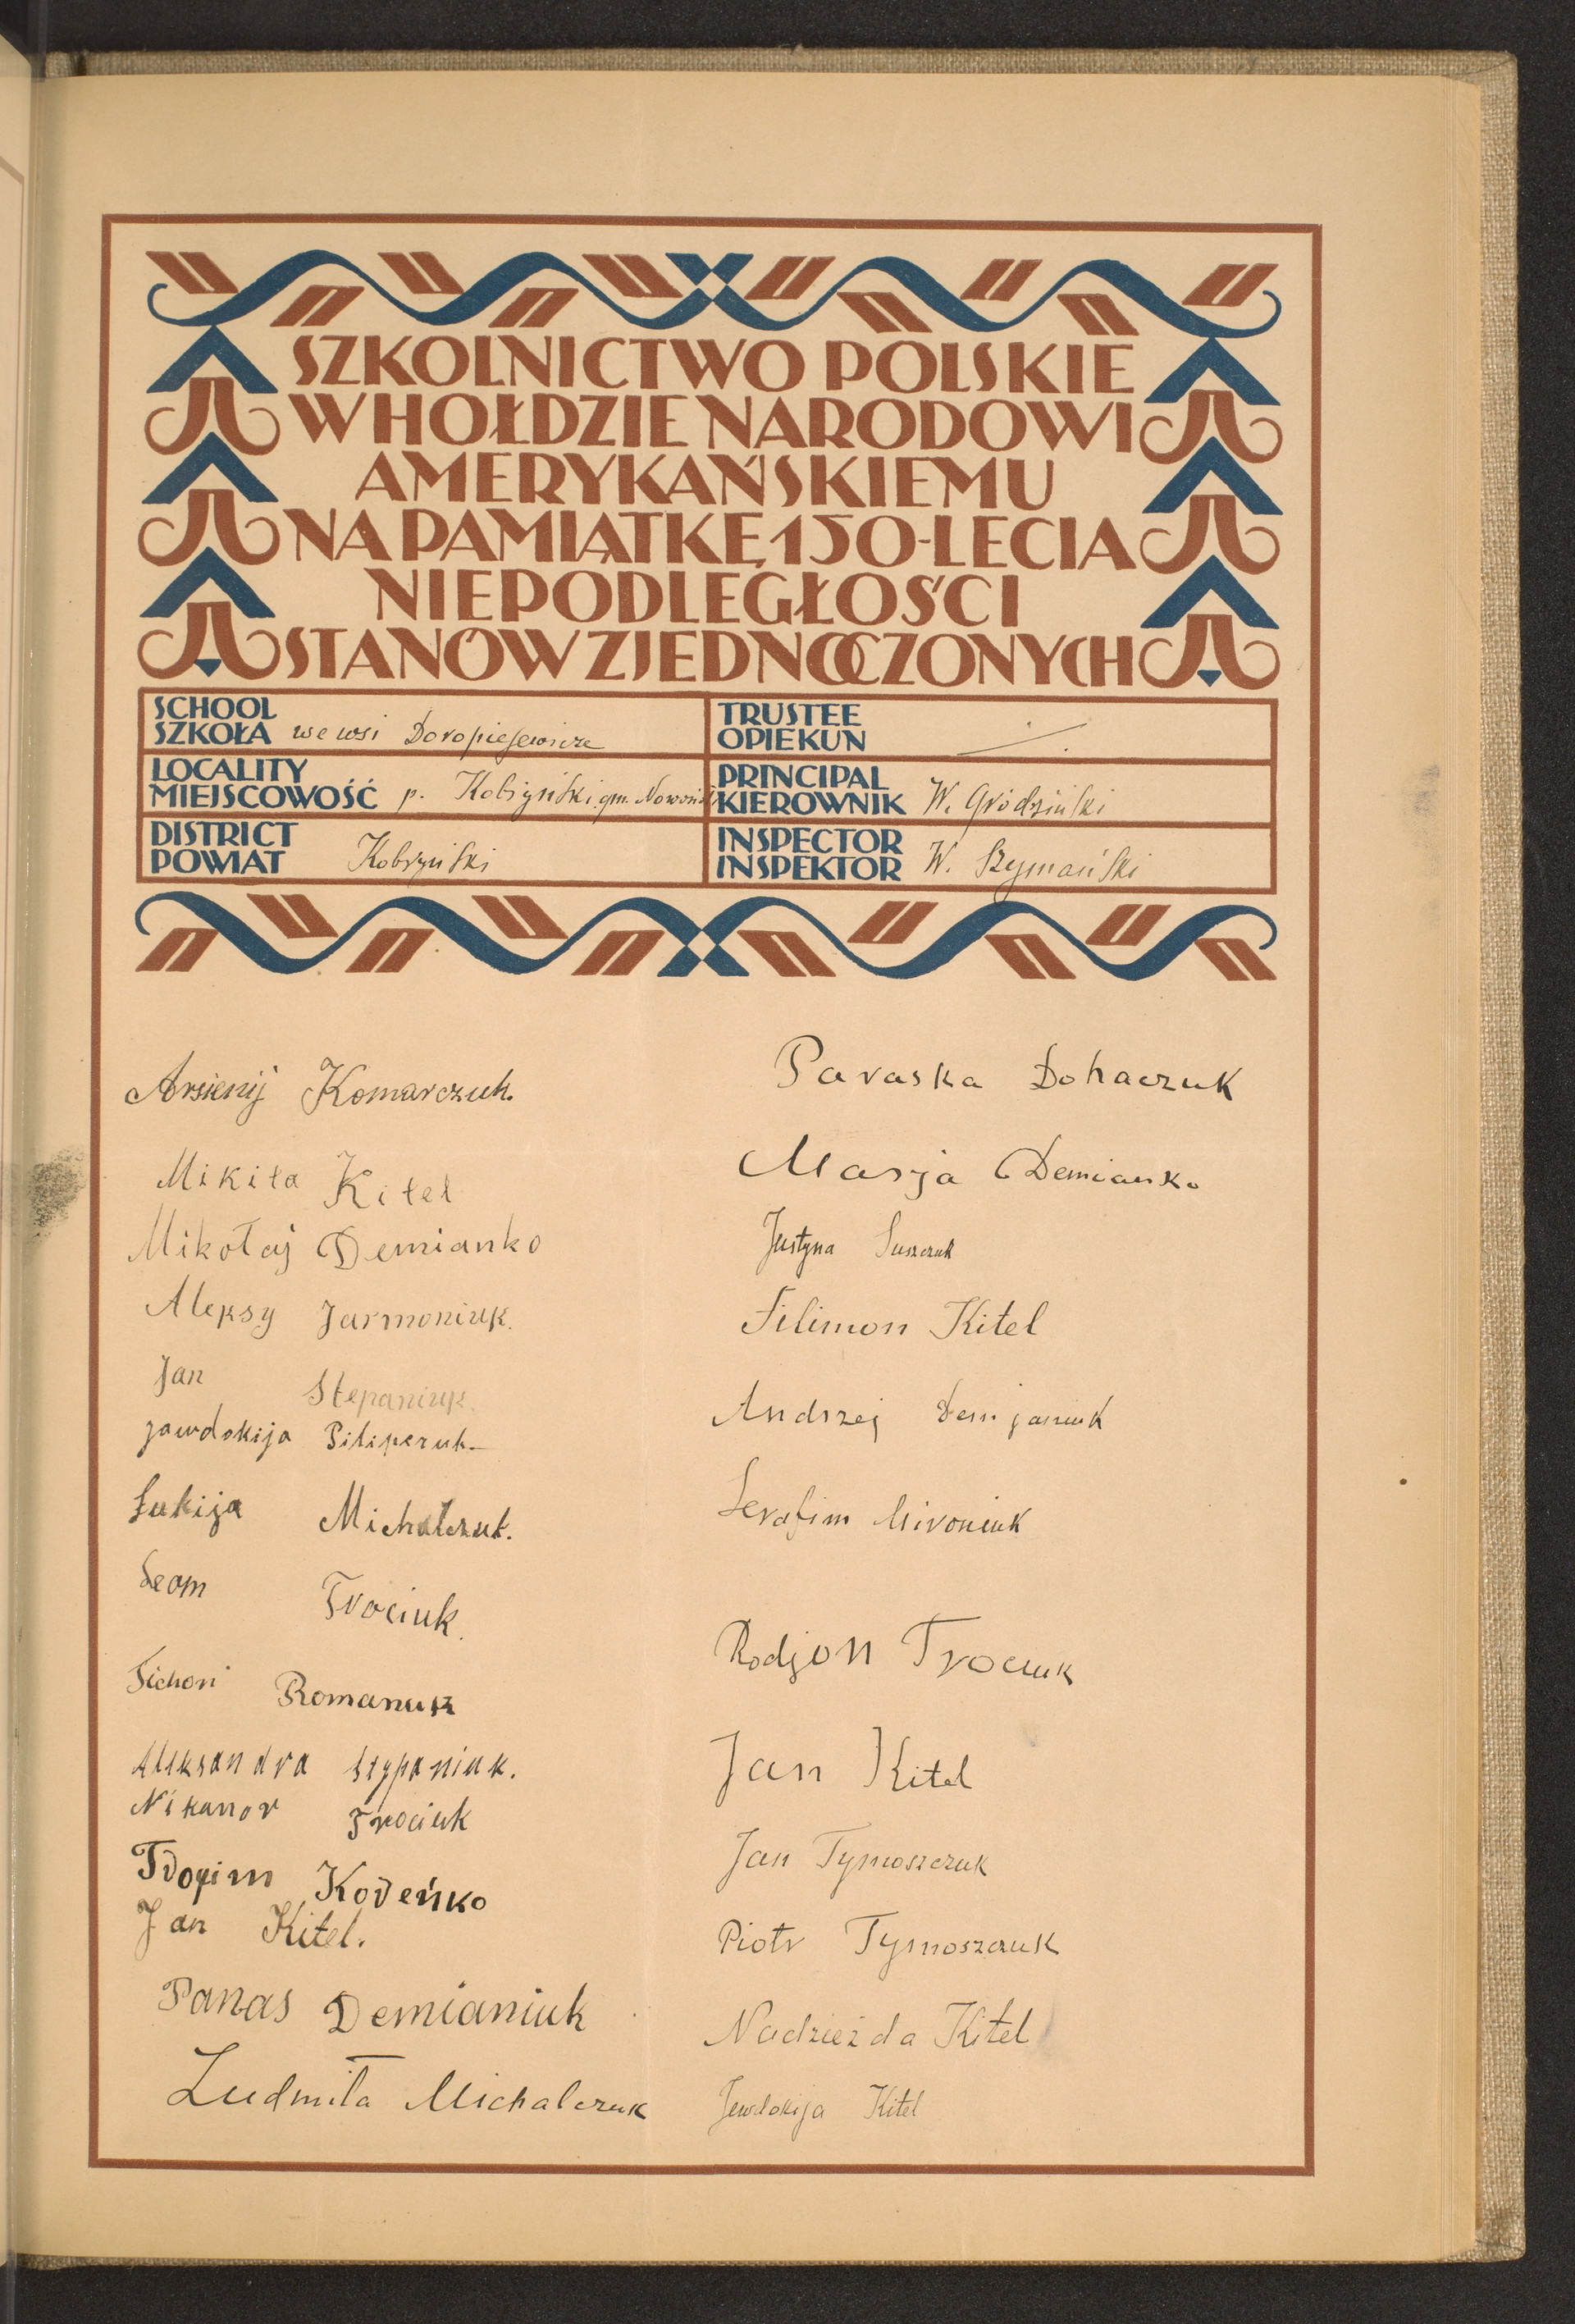 SZKOLNICTWO POLSKIE
W HOŁDZIE NARODOWI
AMERYKAŃSKIEMU
NA PAMIĄTKĘ 150-LECIA
NIEPODLEGŁOŚCI
STANÓW ZJEDNOCZONYCH
SCHOOL
SZKOŁA we wsi Doropiejewicze
TRUSTEE
OPIEKUN
LOCALITY
MIEJSCOWOŚĆ p. Kobryński gm.
PRINCIPAL
KIEROWNIK W. Gródziński
DISTRICT
POWIAT Kobryński
INSPECTOR
INSPEKTOR W. Szymański
Arsienij Komarczuk.
Mikita Kitel
Mikołaj Demianko
Aleksy Jarmoniuk.
Jan Stepaniuk.
Jawdokija Pilipczuk
Łukija Michalczuk.
Leon Trociuk.
Tichon Romanuk
Aleksandra Stypaniuk.
Nikanor Trociuk
Trofim Koreńko
Jan Kitel.
Panas Demianiuk
Ludmiła Michalczuk
Paraska Dohaczuk
Marja Demianko
Justyna Suszczuk
Filimon Kitel
Andrzej Demjaniuk
Serafim Mironiuk
Rodjon Trociuk
Jan Kitel
Jan Tymoszczuk
Piotr Tymoszczuk
Nadzieżda Kitel
Jewdokija Kitel